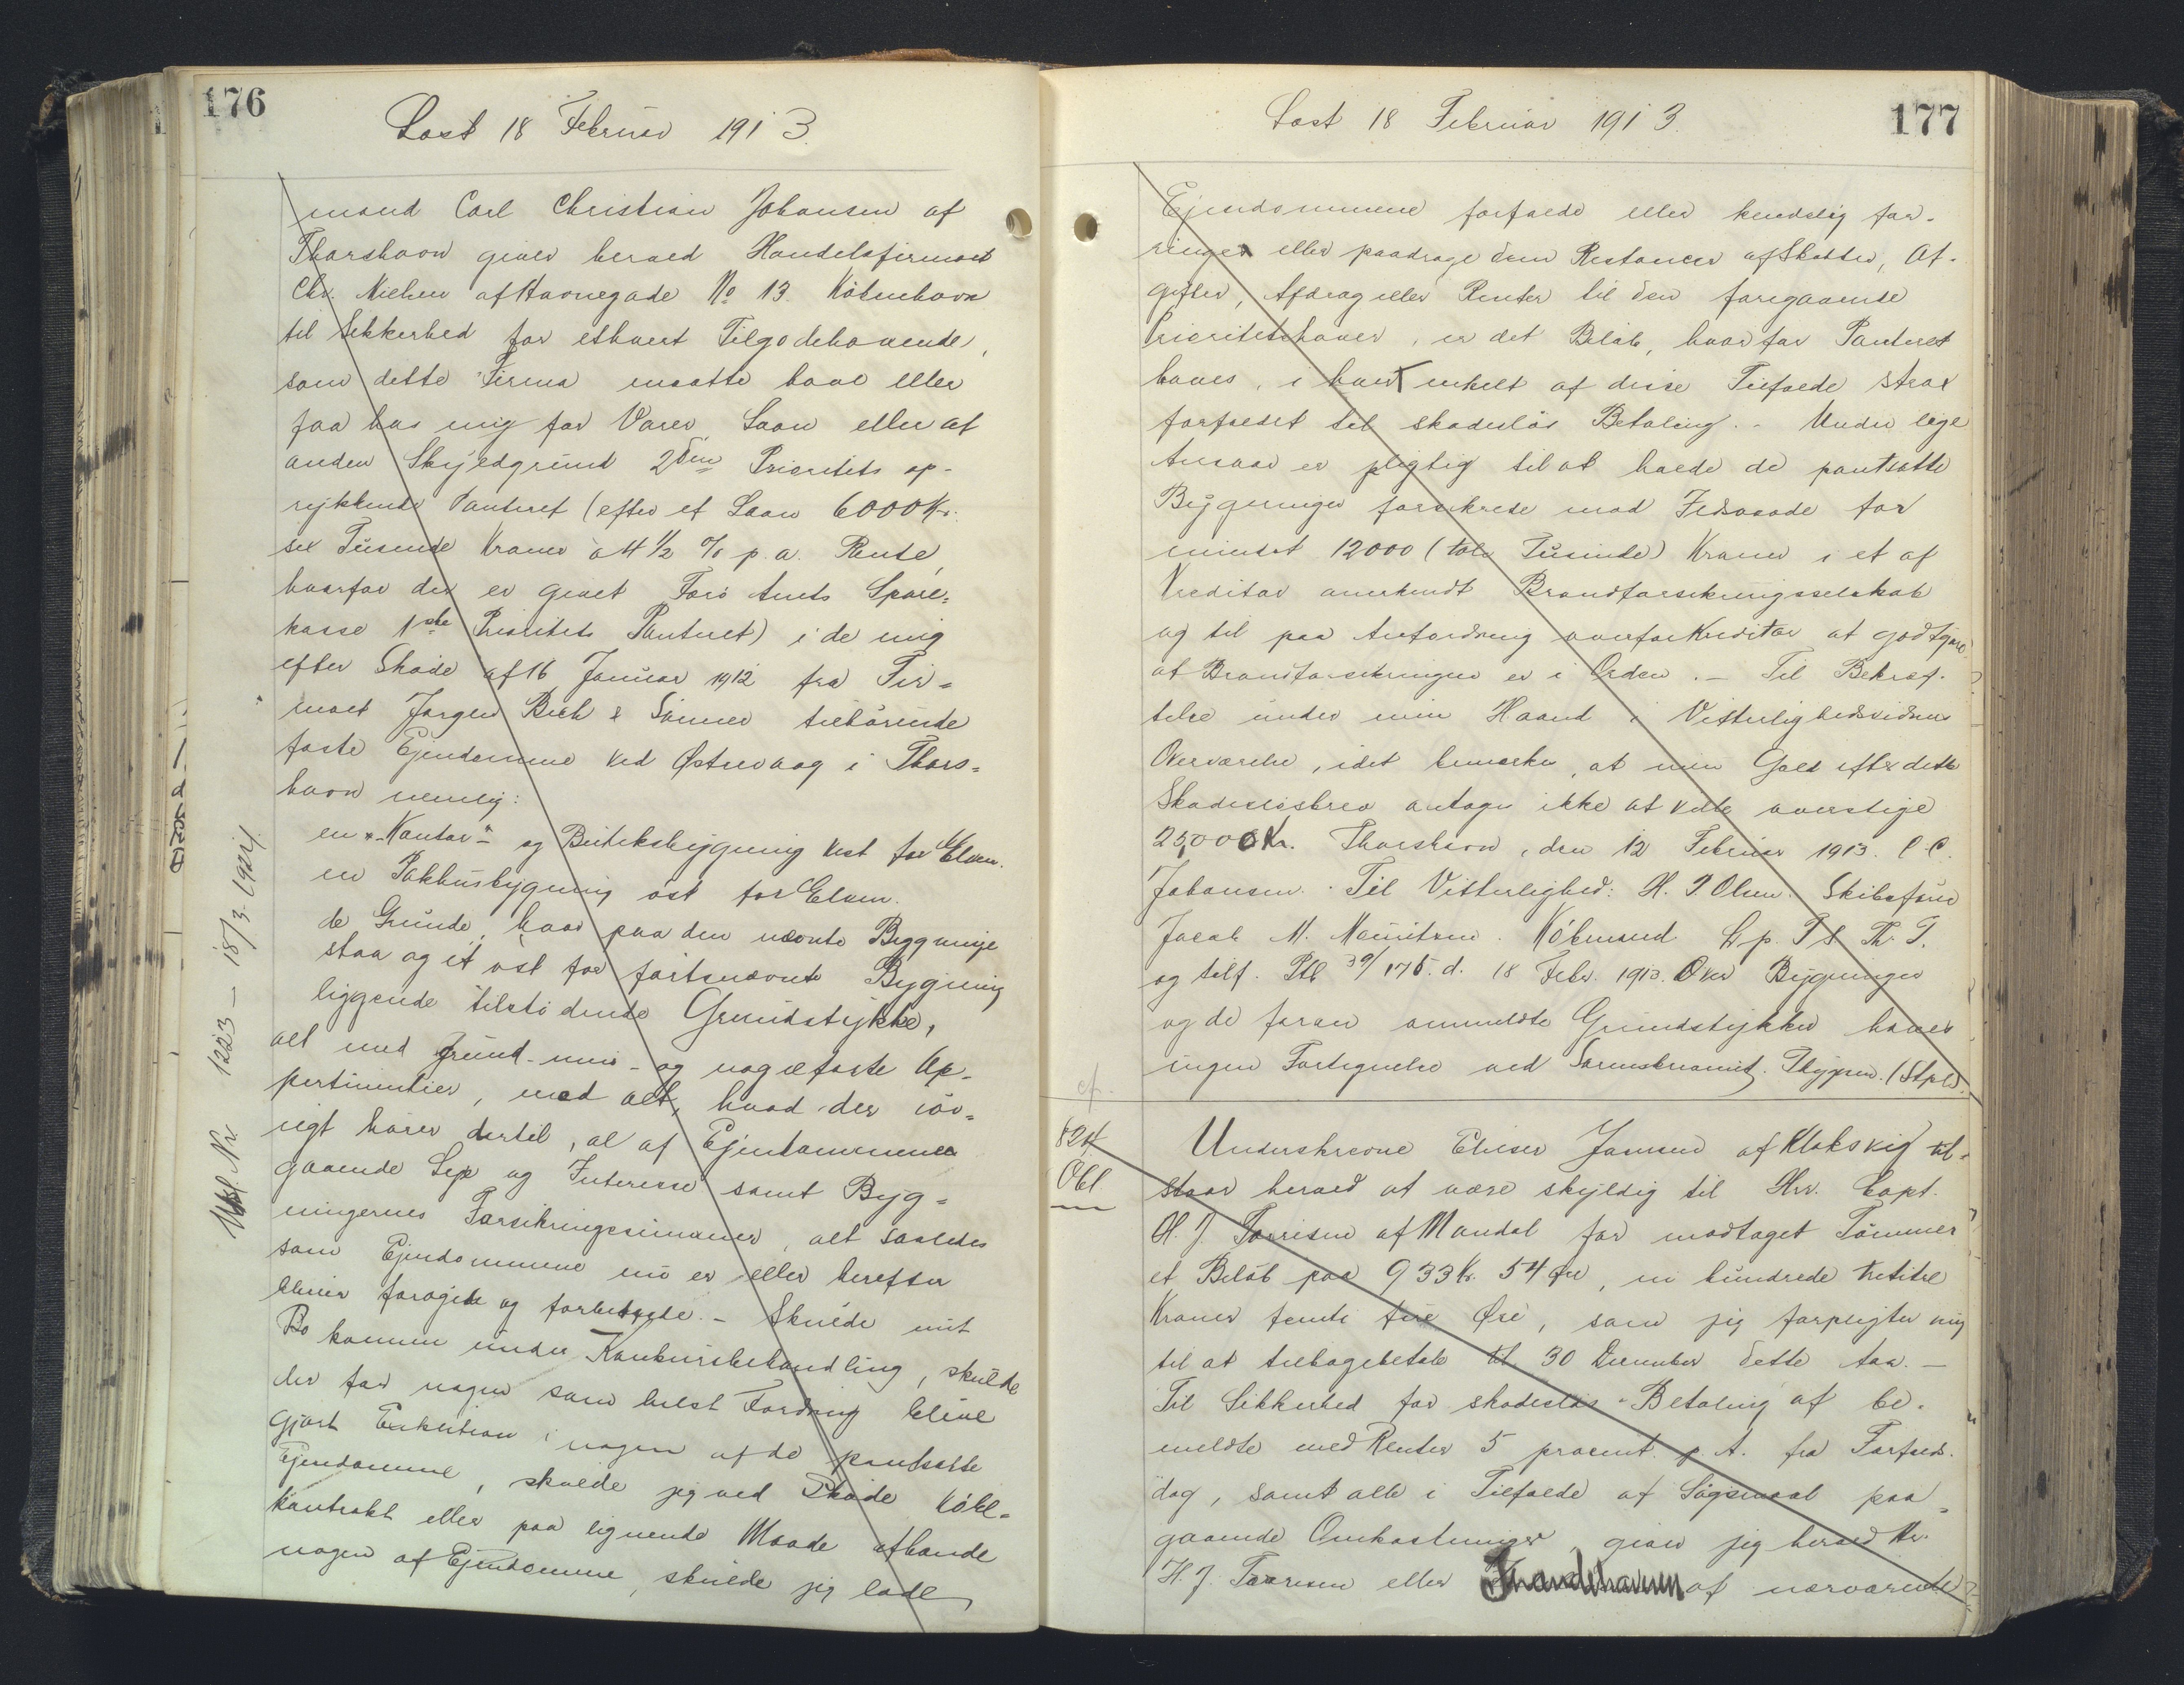 176
Læst 18 Februar 1913.
mand Carl Christian Johansen af
Thorshavn giver herved Handelsfirmaet
Chr. Nielsen af Havnegade No 13. København
til Sikkerhed for ethvert Tilgodehavende,
som dette Firma maatte have eller
faa hos mig for Varer, Laan eller af
anden Skyldgrund 2den Prioritets op-
rykkende Panteret (efter et Laan 6000 Kr.
sex Tusinde Kroner à 4 1/2 % p. a. Rente,
hvorfor der er givet Færø Amts Spare-
kasse 1ste Prioritets Panteret) i de mig
efter Skøde af 16 Januar 1912 fra Fir-
maet Jørgen Bech & Sønner tilhørende
faste Ejendomme ved Østrevaag i Thors-
havn nemlig:
en "Kontor"- og Butiksbygning vest for Elven.
en Pakhusbygning øst for Elven.
de Grunde, hvor paa den nævnte Bygninge
staa og et øst for førstnævnte Bygning
liggende tilstødende Grundstykke,
alt med grund- mur- og nagelfaste Ap-
pertinentier, med alt, hvad der iøv-
rigt hører dertil, al af Ejendommene
gaaende Leje og Interesse samt Byg-
ningernes Forsikringssummer, alt saaledes
som Ejendommene nu er eller herefter
bliver forøgede og forbedrede. - Skulde mit
Bo komme under Konkursbehandling, skulde
der for nogen som helst Fordring blive
gjort Exekution i nogen af de pantsatte
Ejendomme, skulde jeg ved Skøde Købe-
kontrakt eller paa lignende Maade afhænde
nogen af Ejendomme, skulde jeg lade
Udsl. Nr 1223 - 18/3 1924.
Læst 18 Februar 1913.
177
Ejendommene forfalde eller kendelig for-
ringes eller paadrage dem Restancer af Skatter, Af-
gifter, Afdrag eller Renter til den foregaaende
Prioritetshaver, er det Beløb, hvorfor Panteret
haves, i hvert enkelt af disse Tilfælde strax
forfaldet til skadesløs Betaling. - Under lige
Ansvar er pligtig til at holde de pantsatte
Bygninger forsikrede mod Ildsvaade for
mindst 12000 (tolv Tusinde) Kroner i et af
Kreditor anerkendt Brandforsikringsselskab
og til paa Anfordring overfor Kreditor at godtgøre
at Brandforsikringen er i Orden. - Til Bekræf-
telse under min Haand i Vitterlighedsvidners
Overværelse, idet bemærkes, at min Gæld efter dette
Skadesløsbrev antages ikke at ville overstige
25,000 Kr. Thorshavn, den 12 Februar 1913. C. C.
Johansen. Til Vitterlighed: H. P. Olsen. Skibsfører
Jacob M. Mouritsen. Købmand
og tilf. Ptb 39/175. d. 18 Febr. 1913. Over Bygninger
og de foran ommeldte Grundstykker haves
ingen Fortegnelse ved Sorenskriveriet. Thygesen. (Stpl).
cf.
824
Obl
Underskrevne Elieser Jensen af Klaksvig til-
staar herved at være skyldig til Hr. Capt.
H. J. Torrisen af Mandal for modtaget Tømmer
et Beløb paa 933 Kr. 54 Øre, ni hundrede tretitre
Kroner femti fire Øre, som jeg forpligter mig
til at tilbagebetale til 30 December dette Aar. -
Til Sikkerhed for skadesløs Betaling af be-
meldte med Renter 5 procent p. A. fra Forfalds-
dag, samt alle i Tilfælde af Søgsmaal paa-
gaaende Omkostninger, giver jeg herved Hr.
H. J. Torrisen eller Ihændehaveren af nærværende